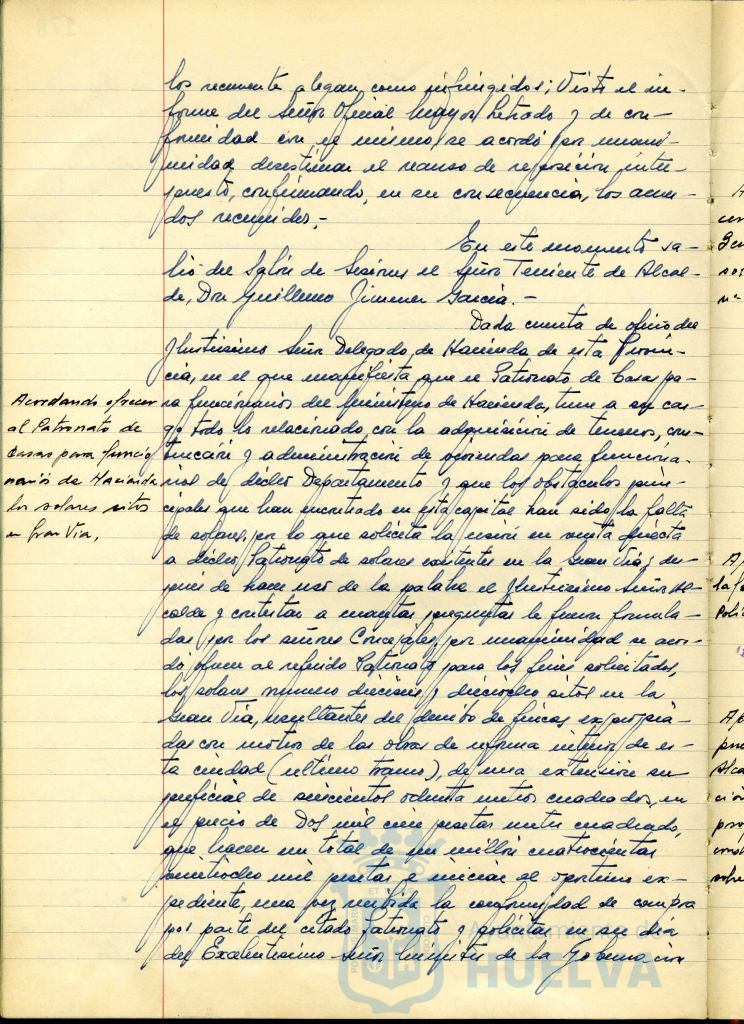 los recurrente alegan como infringidos; Visto el in-
forme del Señor Oficial Mayor Letrado y de con-
formidad con el mismo, se acordó por unani-
midad desestimar el recurso de reposición inter-
puesto, confirmando, en su consecuencia, los acuer-
dos recurridos.-
En este momento sa-
lió del Salón de Sesiones el Señor Teniente de Alcal-
de, Don Guillermo Jimenez García.-
Dada cuenta de oficio del
Ilustrisimo Señor Delegado de Hacienda de esta Provin-
cia, en el que manifiesta que el Patronato de Casas pa-
ra funcionarios del Ministerio de Hacienda, tiene a su car-
go todo lo relacionado con la adquisición de terrenos, cons-
trucción y administración de viviendas para funciona-
rios de dicho Departamento y que los obstaculos prin-
cipales que han encontrado en esta capital han sido la falta
de solares, por lo que solicita la cesión en venta directa
a dicho Patronato de solares existentes en la Gran Via; des-
pués de hacer uso de la palabra el Ilustrisimo Señor Al-
calde y contestar a cuantas preguntas le fueron formula-
das por los señores Concejales, por unanimidad se acor-
dó ofrecer al referido Patronato para los fines solicitados,
los solares numero dieciseis y dieciocho sitos en la
Gran Via, resultantes del derribo de fincas expropia-
das con motivo de las obras de reforma interior de es-
ta ciudad (ultimo tramo), de una extensión su-
perficial de seiscientos ochenta metros cuadrados, en
el precio de Dos mil cien pesetas metro cuadrado,
que hacen un total de un millón cuatrocientas
veintiocho mil pesetas e iniciar el oportuno ex-
pediente, una vez recibida la conformidad de compra
por parte del citado Patronato y solicitar en su dia
del Excelentisimo Señor Ministro de la Gobernación
Acordando ofrecer
al Patronato de
Casas para funcio
narios de Hacienda
los solares sitos
en Gran Via.
Ayuntamiento de
HUELVA